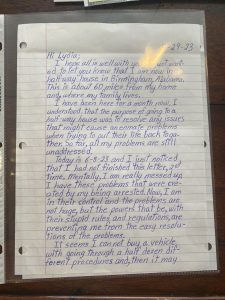 -29-23
Hi Lydia;
I hope all is well with you. I just want-
ed to let you know that I am now in a
half-way house in Birmingham, Alabama.
This is about 60 miles from my home
and where my family lives.
I have been here for a month now. I
understood that the purpose of going to a
half-way house was to resolve any issues
that might cause an inmate problems
when trying to put their life back toge-
ther. So far, all my problems are still
unaddressed.
Today is 6-8-23 and I just noticed
that I had not finished this letter, yet
Time. Mentally, I am really messed up.
I have these problems that were cre-
ated by my being arrested. Now, I am
in their control and the problems are
not huge, but the powers that be, with
their stupid rules and regulations, are
preventing me from the easy resolu-
tions of the problems.
It seems I can not buy a vehicle
with going through a half dozen dif-
ferent procedures and, then it may